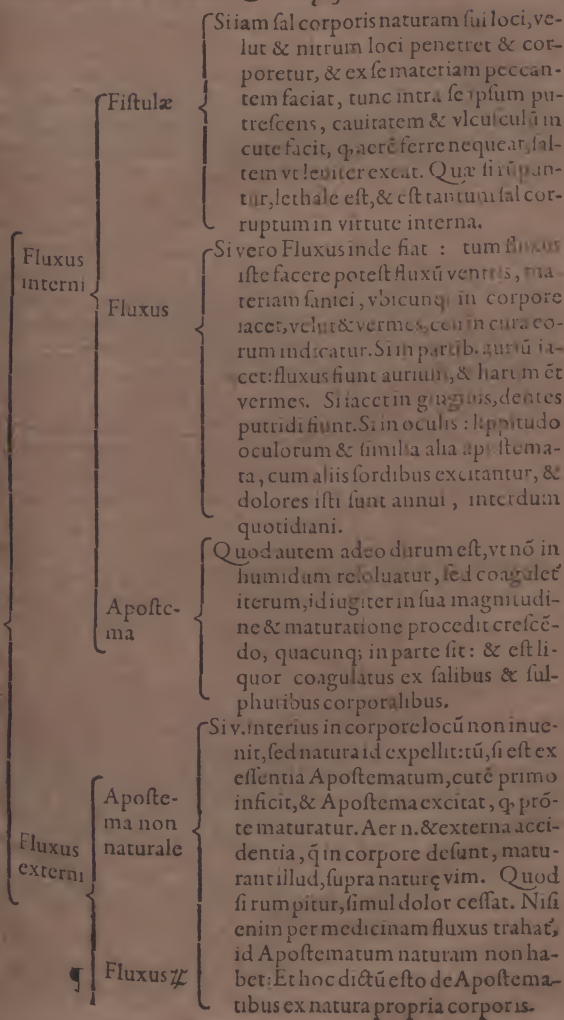 Fistulæ
Si iam sal corporis naturam sui loci, ve-
lut & nitrum loci penetret & cor-
poretur, & ex se materiam peccan-
tem faciat, tunc intra se ipsum pu-
trescens, cauitatem & vlcusculū in
cute facit, q, aerē ferre nequeat, sal-
tem vt leuiter exeat. Quæ si rūpan-
tur, lethale est, & est tantum sal cor-
ruptum in virtute interna.
Fluxus
interni
Fluxus
Si vero Fluxus inde fiat : tum fluxus
iste facere potest fluxū ventris, ma-
teriam saniei, vbicunq; in corpore
iacet, velut & vermes, ceu in cura eo-
rum indicatur. Si in partib. auriū ia-
cet: fluxus fiunt aurium, & harum ēt
vermes. Si iacet in gingiuis, dentes
putridi fiunt. Si in oculis : lippitudo
oculorum & similia alia apostema-
ta, cum aliis sordibus excitantur, &
dolores isti sunt annui, interdum
quotidiani.
Aposte-
ma
Quod autem adeo durum est, vt nō in
humidum resoluatur, sed coagulet
iterum, id iugiter in sua magnitudi-
ne & maturatione procedit crescē-
do, quacunq; in parte sit: & est li-
quor coagulatus ex salibus & sul-
phuribus corporalibus.
Fluxus
externi
Aposte-
ma non
naturale
Si v. interius in corpore locū non inue-
nit, sed natura id expellit: tū, si est ex
essentia Apostematum, cutē primo
inficit, & Apostema excitat, q, prō-
te maturatur. Aer n. & externa acci-
dentia, q̄ in corpore desunt, matu-
rant illud, supra naturę vim. Quod
si rumpitur, simul dolor cessat. Nisi
enim per medicinam fluxus trahat,
id Apostematum naturam non ha-
bet: Et hoc dictū esto de Apostema-
tibus ex natura propria corporis.
¶ Fluxus